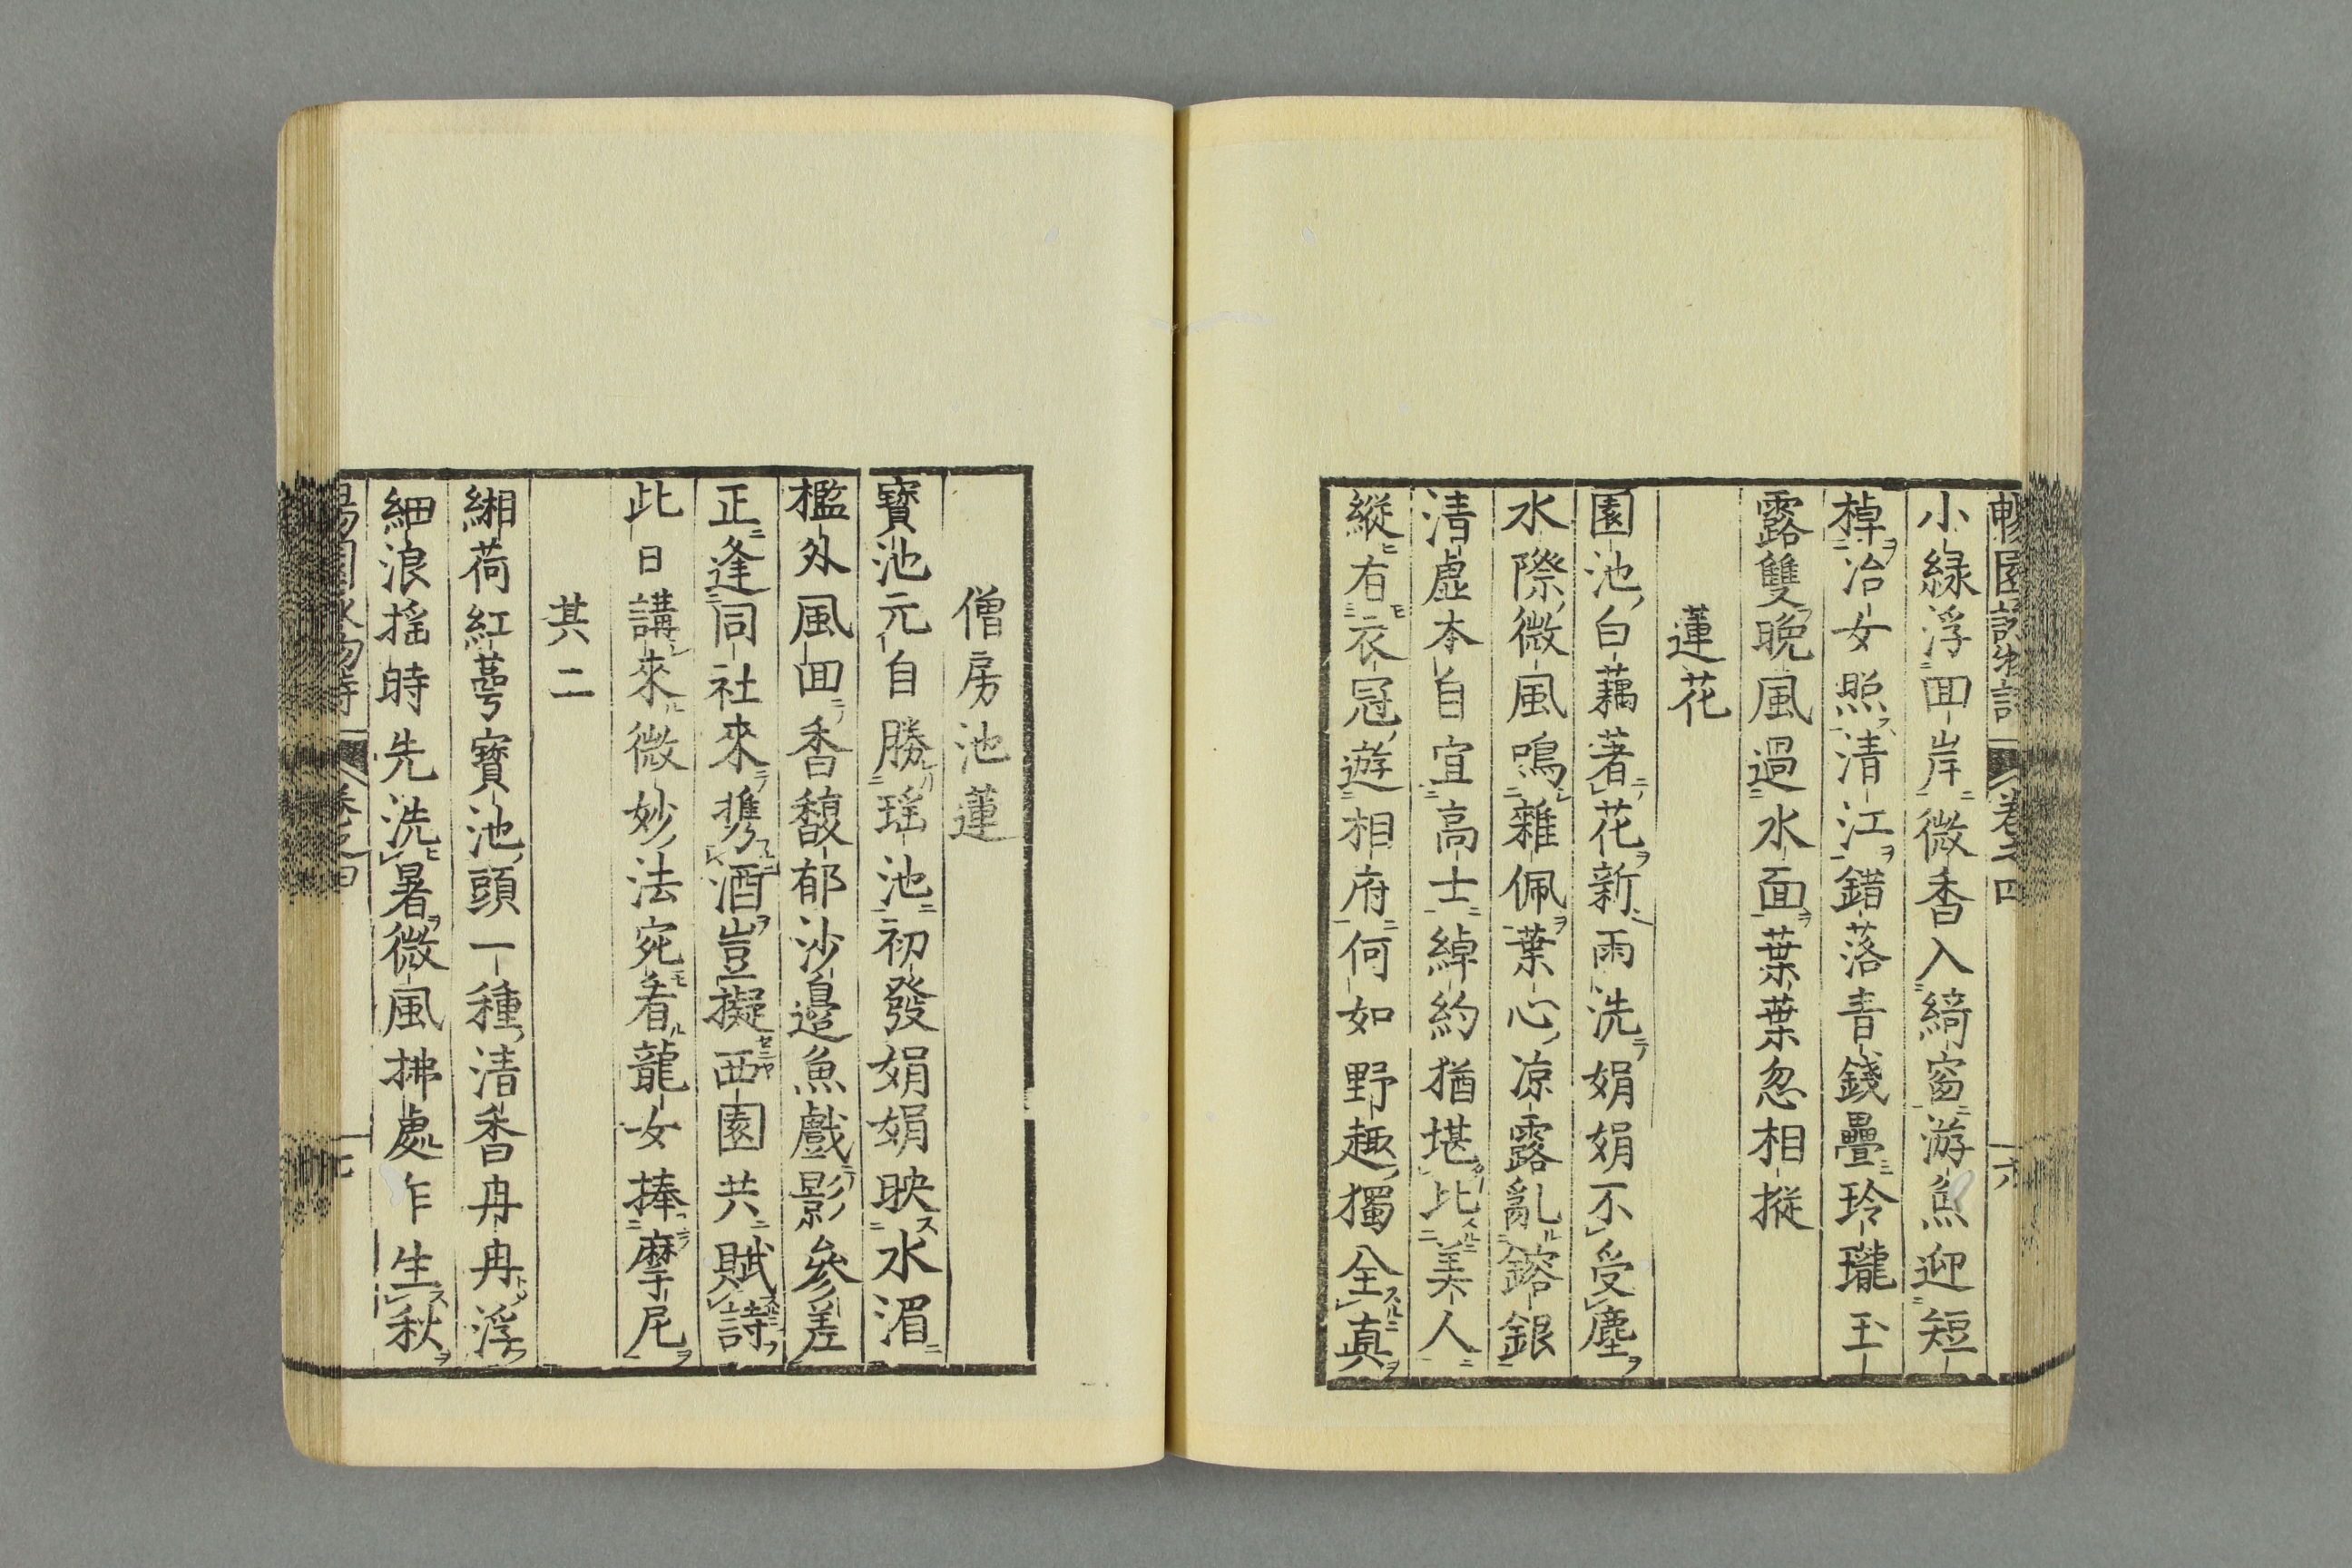 暢園詠物詩 卷之四 六
小綠浮回岸微香入綺窗游魚迎短
棹冶女照清江錯落青錢疊玲瓏玉
露雙晚風過水面葉葉忽相摐
蓮花
園池白藕著花新雨洗娟娟不受塵
水際微風鳴雜佩葉心凉露亂鎔銀
清虛本自宜高士綽約猶堪比美人
縱有衣冠遊相府何如野趣獨全真
僧房池蓮
寶池元自勝瑤池初發娟娟映水湄
檻外風回香馥郁沙邊魚戲影參差
正逢同社來攜酒豈擬西園共賦詩
此日講來微妙法宛看龍女捧摩尼
其二
緗荷紅萼寶池頭一種清香冉冉浮
細浪搖時先洗暑微風拂處乍生秋
暢園詠物詩 卷之四